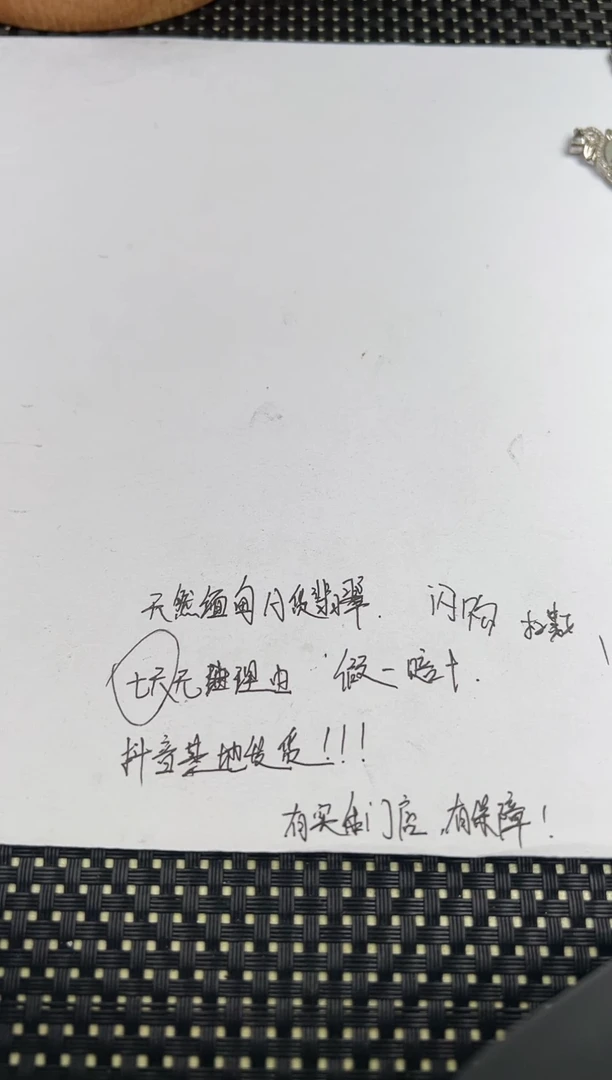 天然缅甸A货翡翠. 闪购
七天无理由 假一赔十.
抖音基地发货!!!
有实体门店,有保障!